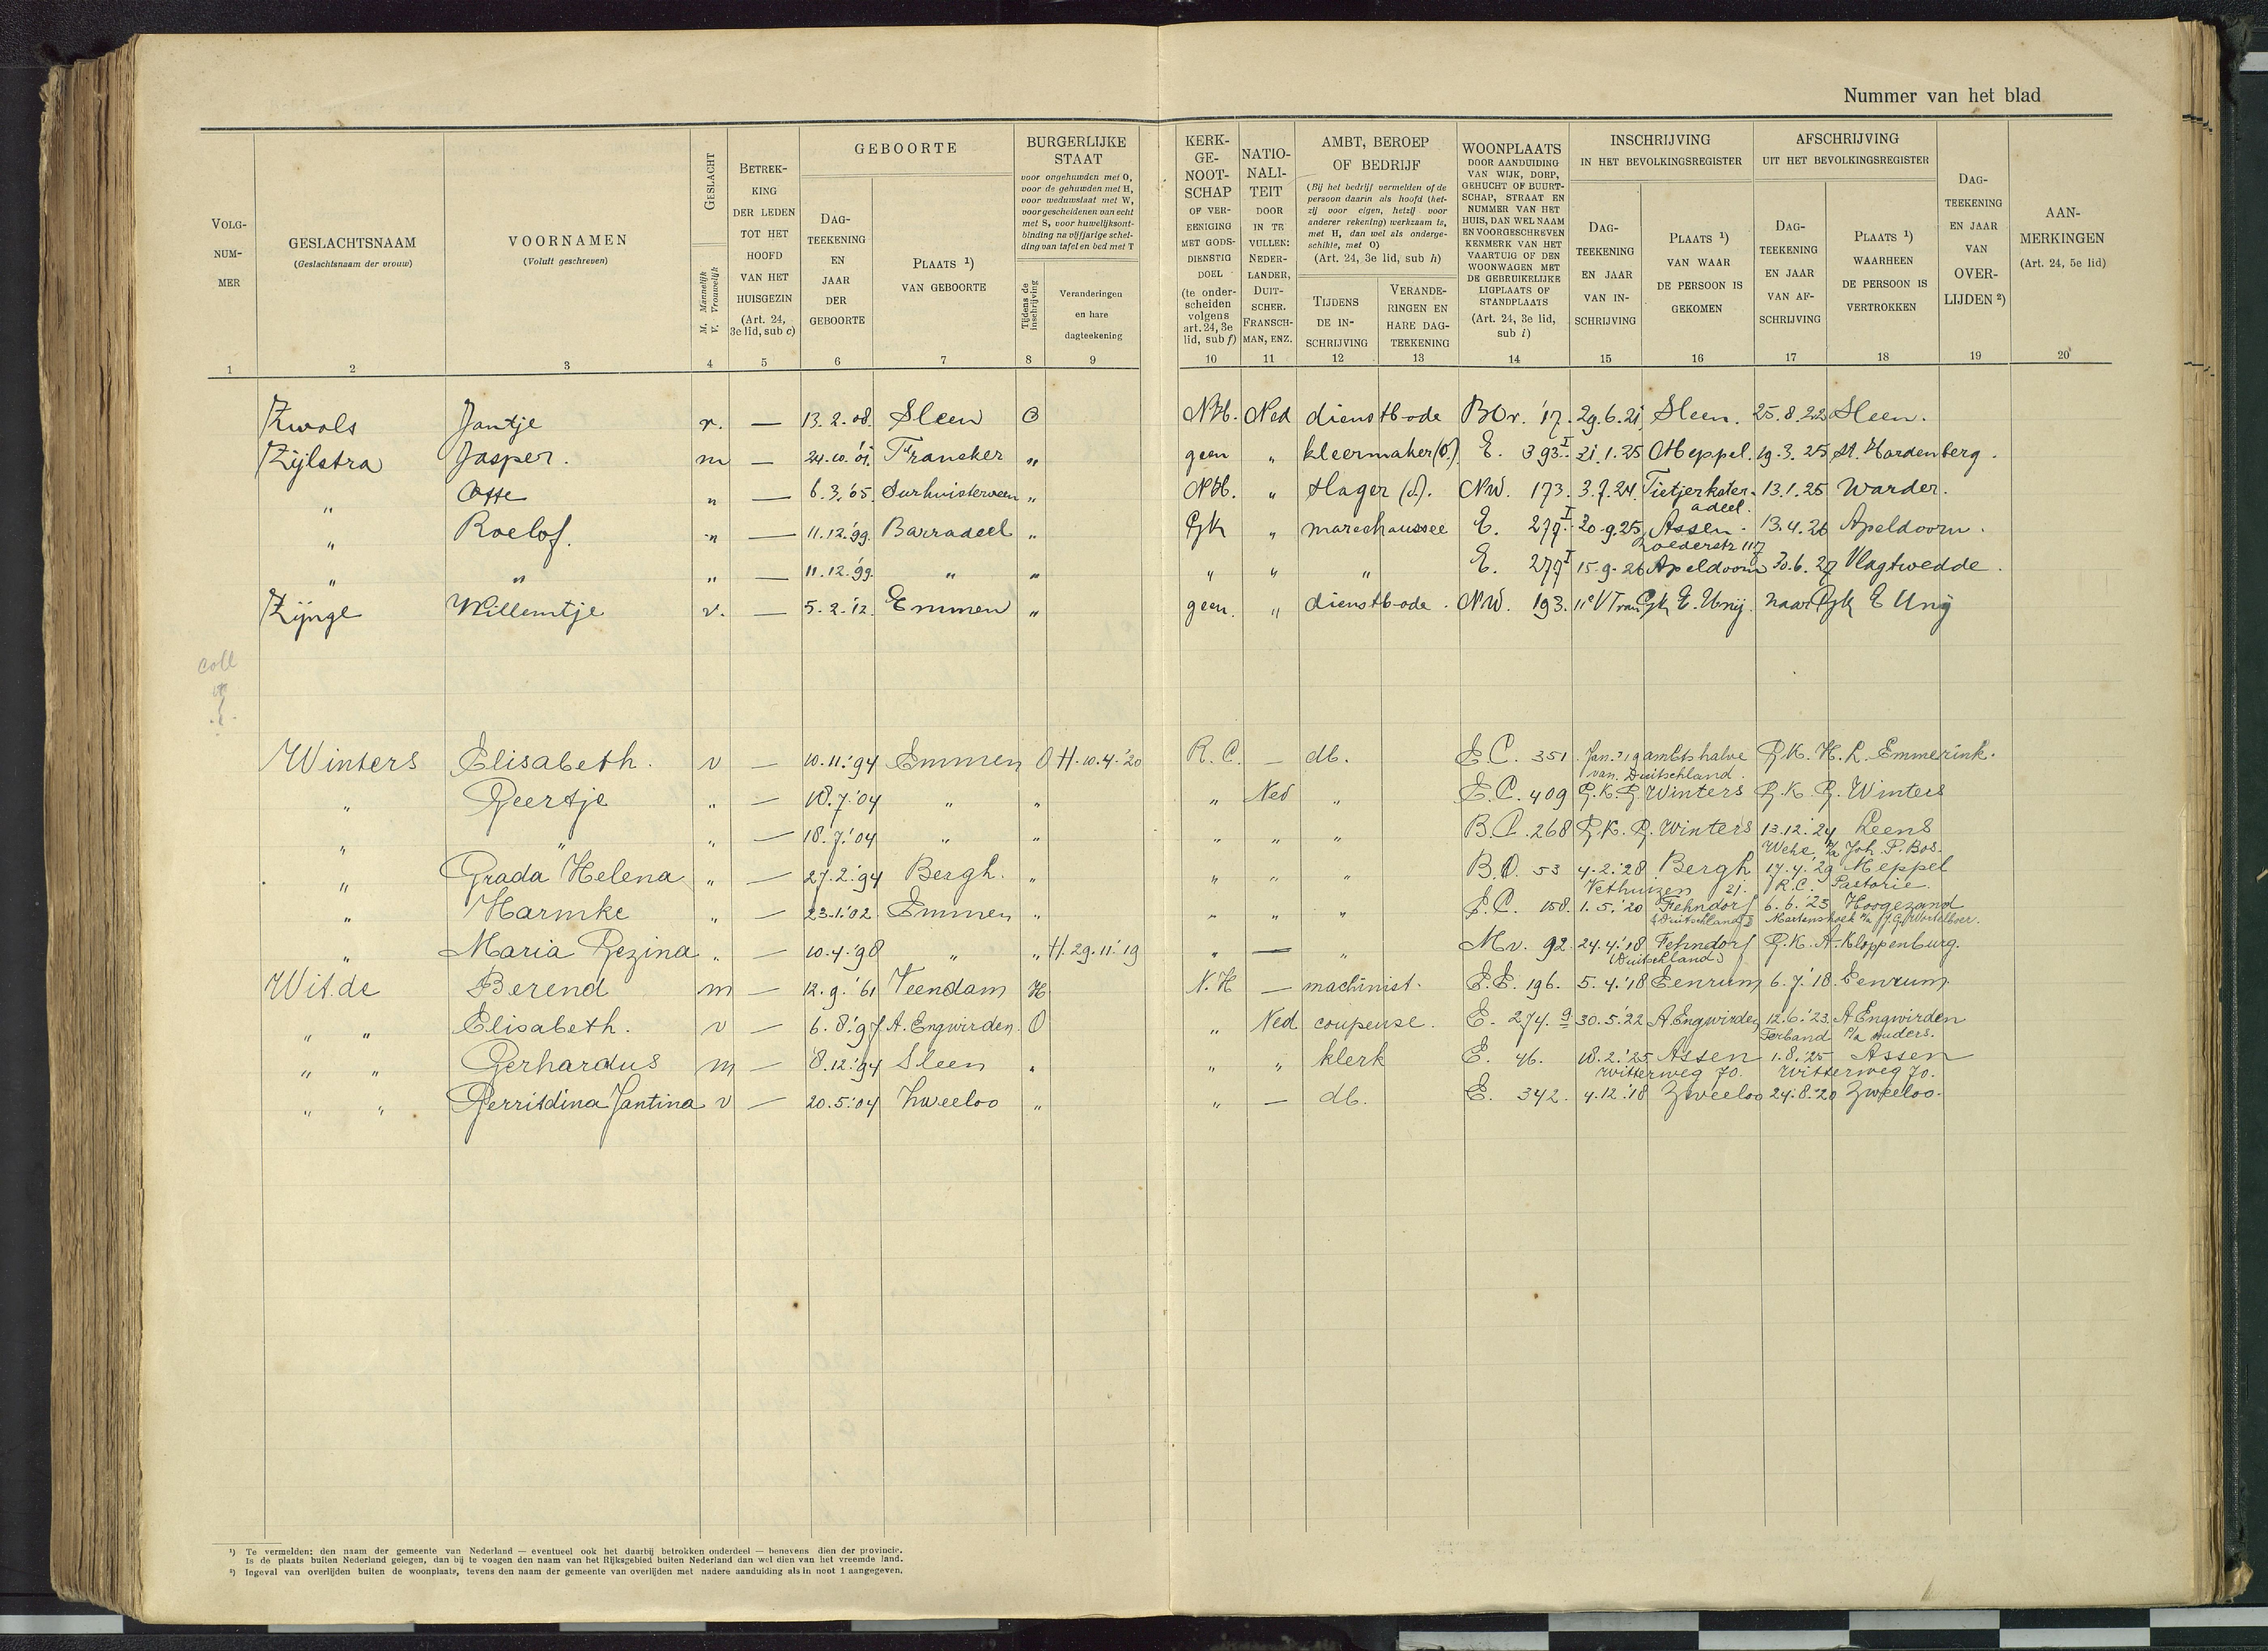 Nummer van het blad
VOLG-NUM-MER
GESLACHTSNAAM
(Geslachtsnaam der vrouw)
VOORNAMEN
(Voluit geschreven)
GESLACHT
M. Mannelijk
V. Vrouwelijk
BETREK-KING DER LEDEN TOT HET HOOFD VAN HET HUISGEZIN
(Art. 24, 3e lid, sub c)
GEBOORTE
DAG-TEEKENING EN JAAR DER GEBOORTE
PLAATS ¹) VAN GEBOORTE
BURGERLIJKE STAAT
voor ongehuwden met O,
voor de gehuwden met H,
voor weduwstaat met W,
voor gescheidenen van echt
met S, voor huwelijksont-
binding na vijfjarige schei-
ding van tafel en bed met T
Tijdens de inschrijving
Veranderingen en hare dagteekening
KERK-GE-NOOT-SCHAP
OF VER-EENIGING MET GODS-DIENSTIG DOEL
(te onder-scheiden volgens art. 24, 3e lid, sub f)
NATIO-NALI-TEIT
DOOR IN TE VULLEN: NEDER-LANDER, DUIT-SCHER. FRANSCH-MAN, ENZ.
AMBT, BEROEP OF BEDRIJF
(Bij het bedrijf vermelden of de
persoon daarin als hoofd (het-
zij voor eigen, hetzij voor
anderer rekening) werkzaam is,
met H, dan wel als onderge-
schikte, met O)
(Art. 24, 3e lid, sub h)
TIJDENS DE IN-SCHRIJVING
VERANDE-RINGEN EN HARE DAG-TEEKENING
WOONPLAATS
DOOR AANDUIDING
VAN WIJK, DORP,
GEHUCHT OF BUURT-
SCHAP, STRAAT EN
NUMMER VAN HET
HUIS, DAN WEL NAAM
EN VOORGESCHREVEN
KENMERK VAN HET
VAARTUIG OF DEN
WOONWAGEN MET
DE GEBRUIKELIJKE
LIGPLAATS OF
STANDPLAATS
(Art. 24, 3e lid, sub i)
INSCHRIJVING
IN HET BEVOLKINGSREGISTER
DAG-TEEKENING EN JAAR VAN IN-SCHRIJVING
PLAATS ¹) VAN WAAR DE PERSOON IS GEKOMEN
AFSCHRIJVING
UIT HET BEVOLKINGSREGISTER
DAG-TEEKENING EN JAAR VAN AF-SCHRIJVING
PLAATS ¹) WAARHEEN DE PERSOON IS VERTROKKEN
DAG-TEEKENING EN JAAR VAN OVER-LIJDEN ²)
AAN-MERKINGEN
(Art. 24, 5e lid)
1 2 3 4 5 6 7 8 9 10 11 12 13 14 15 16 17 18 19 20
Zwols Jantje v. — 13.2.'08. Sleen O N.H. Ned dienstbode BOr. 17. 29.6.21 Sleen. 25.8.22 Sleen.
Zijlstra Jasper. m — 24.10.'01. Franeker " geen " kleermaker (O.) E. 393 I 21.1.25 Meppel. 19.3.25 St. Hardenberg.
" " — 6.3.'05 Surhuisterveen " N.H. " slager (O.). NW. 173. 3.7.24. Tietjerkster-
adeel. 13.1.25 Warder.
" Roelof. " — 11.12.'99. Barradeel " Gk " marechaussee E. 277 I 20.9.25 Assen. 13.4.26 Apeldoorn.
" " " — 11.12.'99. " " " " " E. 277 I 15.9.26 Apeldoorn 30.6.27 Vlagtwedde.
Zijnge Willemtje v. — 5.2.'12. Emmen " geen. " dienstbode. NW. 193. Gk E. Unij. naar Gk E Unij
coll
Winters Elisabeth. v — 10.11.'94 Emmen O H. 10.4.'20 R.C. — db. E.C. 351 Jan.'19 ambtshalve
van Duitschland. G.K. H.L. Emmerink.
" Geertje " — 18.7.'04 " " " Ned " E.C. 409 G.K. G. Winters G.K. G. Winters
" " " — 18.7.'04 " " " " " B.C. 268 G.K. G. Winters 13.12.'24 Leens
Wehe, p/a Joh. P. Bos.
" Grada Helena " — 27.2.'94 Bergh. " " " " B.O. 53 4.2.'28 Bergh 17.4.'29 Meppel
Vethuizen 21. R.C. Pastorie.
" Harmke " — 23.1.'02 Emmen " " " " E.C. 158. 1.5.'20 Fehndorf 6.6.'25 Hoogezand
(Duitschland) Martenshoek p/a J.G. Wortelboer.
" Maria Gezina " — 10.4.'98 " " H. 29.11.'19 " — " Mv. 92. 24.4.'18 Fehndorf G.K. A. Kloppenburg.
(Duitschland)
Wit.de Berend m — 12.9.'61 Veendam H N.H — machinist. E.E. 196. 5.4.'18 Eenrum 6.7.'18. Eenrum
" " Elisabeth. v — 6.8.'97 A. Engwirden. O " Ned coupeuse. E. 274. 9 30.5.'22 A. Engwirden 12.6.'23. A Engwirden
Terband p/a ouders.
" " Gerhardus m — 8.12.'94 Sleen " " " klerk E. 46. 18.2.'25 Assen 1.8.'25 Assen
Witterweg 70. Witterweg 70.
" " Gerritdina Jantina v — 20.5.'04 Zweeloo " " — db. E. 342. 4.12.'18 Zweeloo 24.8.'20 Zweeloo.
¹) Te vermelden: den naam der gemeente van Nederland — eventueel ook het daarbij betrokken onderdeel — benevens dien der provincie.
Is de plaats buiten Nederland gelegen, dan bij te voegen den naam van het Rijksgebied buiten Nederland dan wel dien van het vreemde land.
²) Ingeval van overlijden buiten de woonplaats, tevens den naam der gemeente van overlijden met nadere aanduiding als in noot 1 aangegeven.